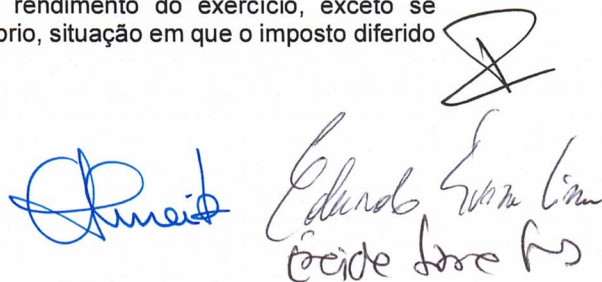 rendimento do exercício, exceto se
brio, situação em que o imposto diferido
Almeida
Eduardo